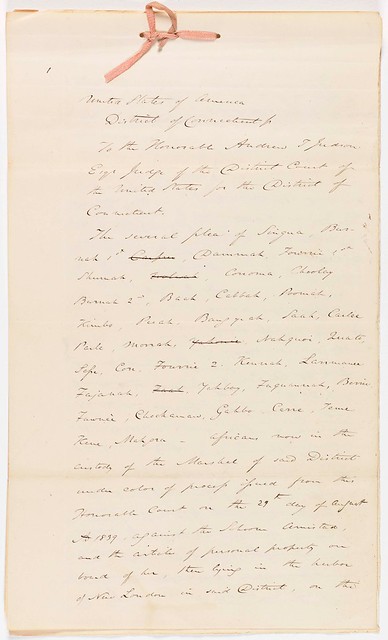 1
United States of America
District of Connecticut ss
To the Honorable Andrew T Judson
Esqr Judge of the District Court of
the United States for the District of
Connecticut.
The several plea of Singua, Bur-
nah 1st Carpree, Dammah, Fourrie 1st
Shumah, Conoma, Chooley
Burnah 2d, Baah, Cabbah, Poomah,
Kimbo, Peeah, Bangyeah, Saah, Carlee
Parle, Morrah, Yahome, Nahquoi, Quato,
Sese, Con, Fourrie 2, Kennah, Lammane
Fajanah, Faah, Yahboy, Faquannah, Berrie
Fawnie, Chockamaw, Gabbo, Carre, Teme
Kene, Mahgra - africans now in the
custody of the Marshal of said District
under color of process issued from this
Honorable Court on the 29th day of August
AD 1839, against the Schooner Amistad,
and the articles of personal property on
board of her, then lying in the harbor
of New London, in said District, on the